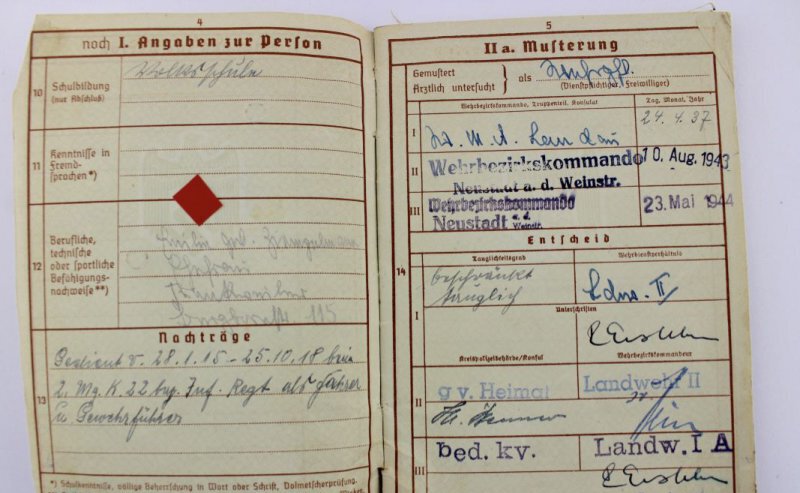 4
noch I. Angaben zur Person
10 Schulbildung
(nur Abschluß)
Volksschule
11 Kenntnisse in
Fremd-
sprachen*)
12 Berufliche,
technische
oder sportliche
Befähigungs-
nachweise**)
Emilie geb.
Ehefrau
Frankweiler
115
Nachträge
13 Gedient v. 28.1.15 – 25.10.18 beim
2. Mg. K. 22 bay. Inf. Regt als Fahrer
u Gewehrführer
*) Schulkenntnisse, völlige Beherrschung in Wort oder Schrift, Dolmetscherprüfung.
5
IIa. Musterung
Gemustert
Ärztlich untersucht } als
(Dienstpflichtiger, Freiwilliger)
Wehrbezirkskommando, Truppenteil, Konsulat
Tag, Monat, Jahr
I W. M. A. Landau 24.4.37
II Wehrbezirkskommando 10. Aug. 1943
Neustadt a. d. Weinstr.
III Wehrbezirkskommando 23. Mai 1944
Neustadt a. d. Weinstr.
Entscheid
14
Tauglichkeitsgrad
Wehrdienstverhältnis
beschränkt
tauglich
Ldw. II
I
Unterschriften
Kreispolizeibehörde/Konsul
Wehrbezirkskommandeur
II g v. Heimat Landwehr II
bed. kv. Landw. I A
III